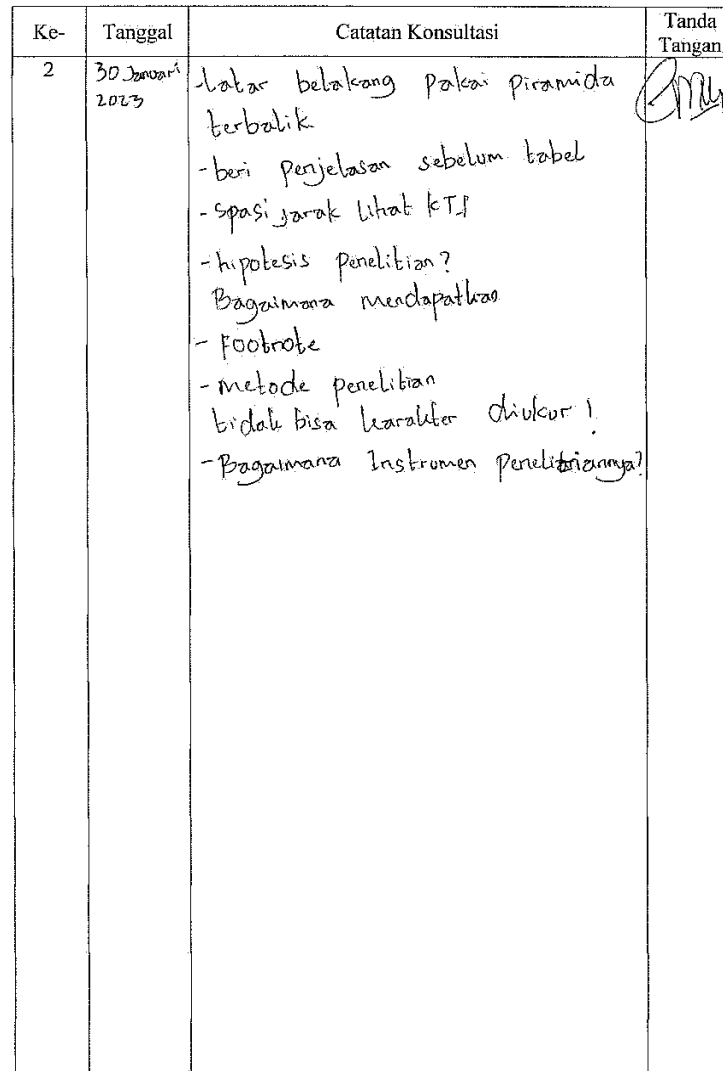 Ke- Tanggal Catatan Konsultasi Tanda Tangan
2 30 Januari 2023
-Latar belakang pakai piramida
terbalik
-beri penjelasan sebelum tabel
-Spasi jarak lihat KTI
-hipotesis penelitian?
Bagaimana mendapatkan
- Footnote
-metode penelitian
tidak bisa karakter diukur!
-Bagaimana Instrumen penelitiannya?